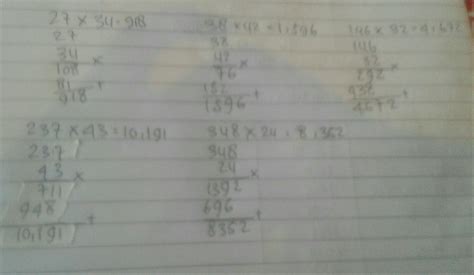 27 × 34 = 918
27
34 ×
108
81 +
918
38 × 42 = 1,596
38
42 ×
76
152 +
1596
146 × 32 = 4,672
146
32 ×
292
438 +
4672
237 × 43 = 10,191
237
43 ×
711
948 +
10,191
348 × 24 = 8,352
348
24 ×
1392
696 +
8352